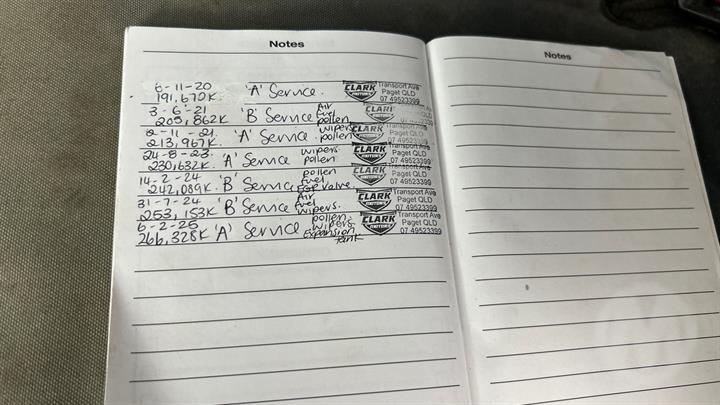 Notes
Notes
6-11-20 'A' Service. CLARK Transport Ave
191,670K. Paget QLD
07 49523399
3-6-21 'B' Service Air CLARK
205,862K Fuel Paget QLD
pollen 07 49523399
2-11-21. 'A' Service wipers CLARK Transport Ave
213,967K. pollen Paget QLD
07 49523399
24-8-23. 'A' Service wipers CLARK Transport Ave
230,632K pollen Paget QLD
07 49523399
14-2-24 'B' Service pollen CLARK
242,089K fuel Paget QLD
07 49523399
31-7-24 'B' Service Air CLARK Transport Ave
253,153K Fuel Paget QLD
wipers. 07 49523399
6-2-25 'A' Service pollen, CLARK Transport Ave
266,328K wipers Paget QLD
Expansion 07 49523399
tank